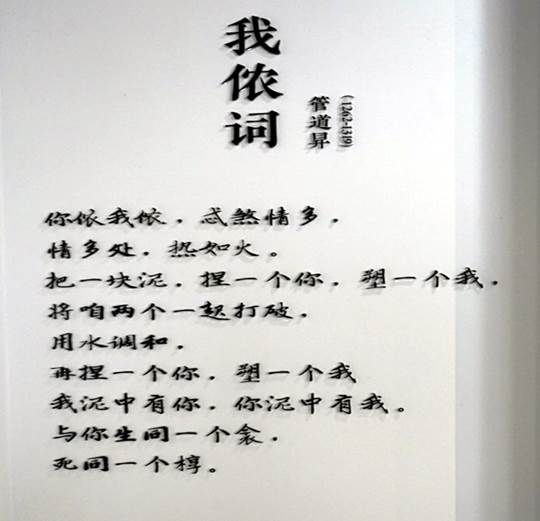 我侬词
管道昇
(1262-1319)
你侬我侬，忒煞情多，
情多处，热如火。
把一块泥，捏一个你，塑一个我，
将咱两个一起打破，
用水调和，
再捏一个你，塑一个我
我泥中有你，你泥中有我。
与你生同一个衾，
死同一个椁。